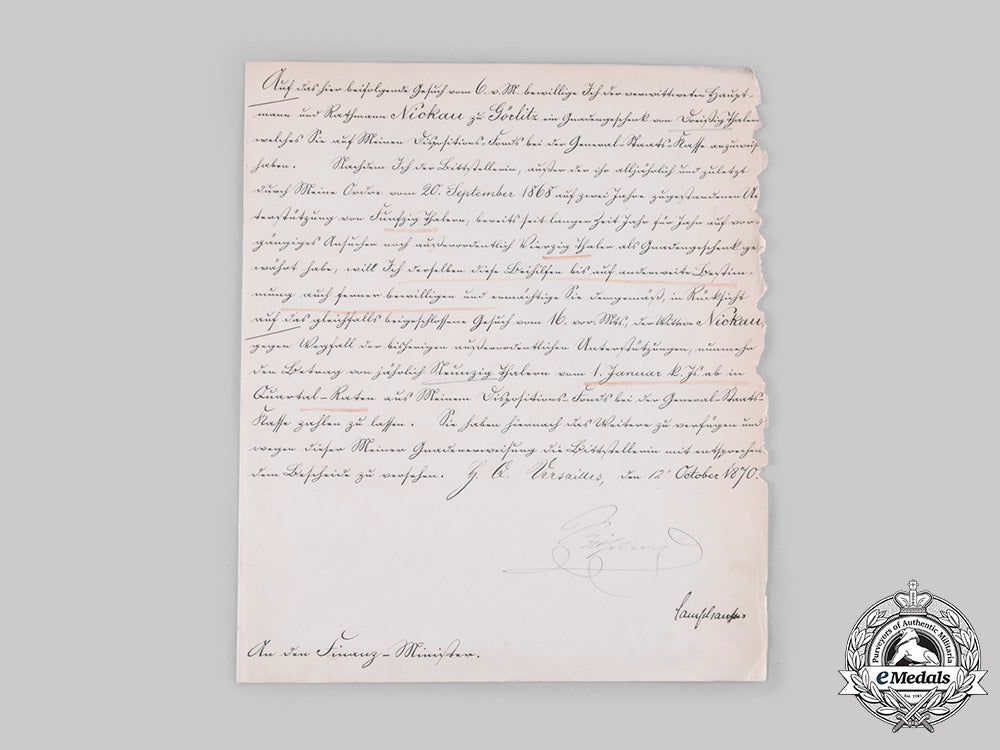 Auf das hier beifolgende Gesuch vom 6. v. M. bewillige Ich der verwittweten Haupt-
mann und Rathmann Nickau zu Görlitz ein Gnadengeschenk von Dreißig Thalern
welches Sie auf Meinen Dispositions-Fonds bei der General-Staats-Kasse anzuwei
haben. Nachdem Ich der Bittstellerin, außer der ihr alljährlich und zuletzt
durch Meine Ordre vom 20. September 1868 auf zwei Jahre zugestandenen Un
terstützung von Fünfzig Thalern, bereits seit langer Zeit Jahr für Jahr auf vor-
gängiges Ansuchen noch außerordentlich Vierzig Thaler als Gnadengeschenk ge-
währt habe, will Ich derselben diese Beihilfen bis auf anderweite Bestim-
mung auch ferner bewilligen und ermächtige Sie demgemäß, in Rücksicht
auf das gleichfalls beigeschlossene Gesuch vom 16. vor. Mts., der Wittwe Nickau,
gegen Wegfall der bisherigen außerordentlichen Unterstützungen, nunmehr
den Betrag von jährlich Neunzig Thalern vom 1. Januar k. Js. ab in
Quartal-Raten aus Meinem Dispositions-Fonds bei der General-Staats-
Kasse zahlen zu lassen. Sie haben hiernach das Weitere zu verfügen und
wegen dieser Meiner Gnadenerweisung die Bittstellerin mit entsprechen
dem Bescheide zu versehen. H. Q. Versailles, den 12 October 1870.
Wilhelm
Camphausen
An den Finanz-Minister.
Purveyors of Authentic Militaria
eMedals